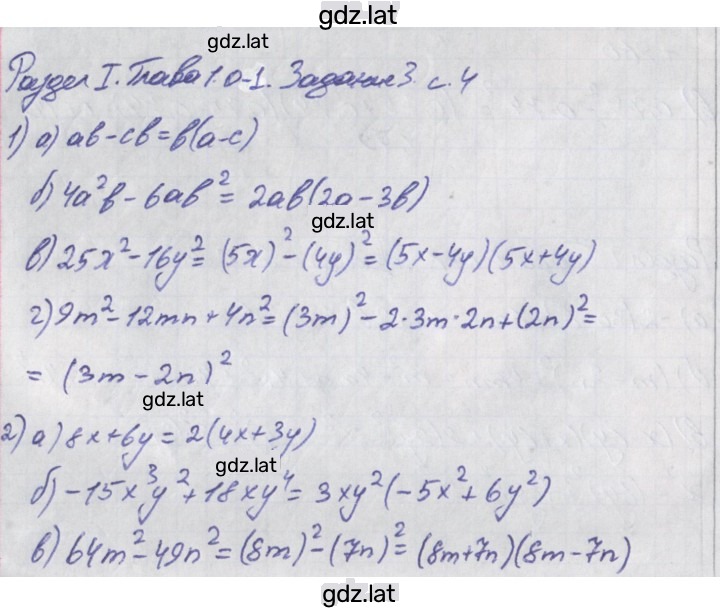 gdz.lat
gdz.lat
Раздел I. Глава 1. О-1. Задание 3. с. 4
1) а) ab - cb = b(a-c)
б) 4a²b - 6ab² = 2ab(2a - 3b)
gdz.lat
в) 25x² - 16y² = (5x)² - (4y)² = (5x - 4y)(5x + 4y)
г) 9m² - 12mn + 4n² = (3m)² - 2·3m·2n + (2n)² =
= (3m - 2n)²
gdz.lat
2) а) 8x + 6y = 2(4x + 3y)
gdz.lat
б) -15x³y² + 18xy⁴ = 3xy²(-5x² + 6y²)
в) 64m² - 49n² = (8m)² - (7n)² = (8m+7n)(8m - 7n)
gdz.lat